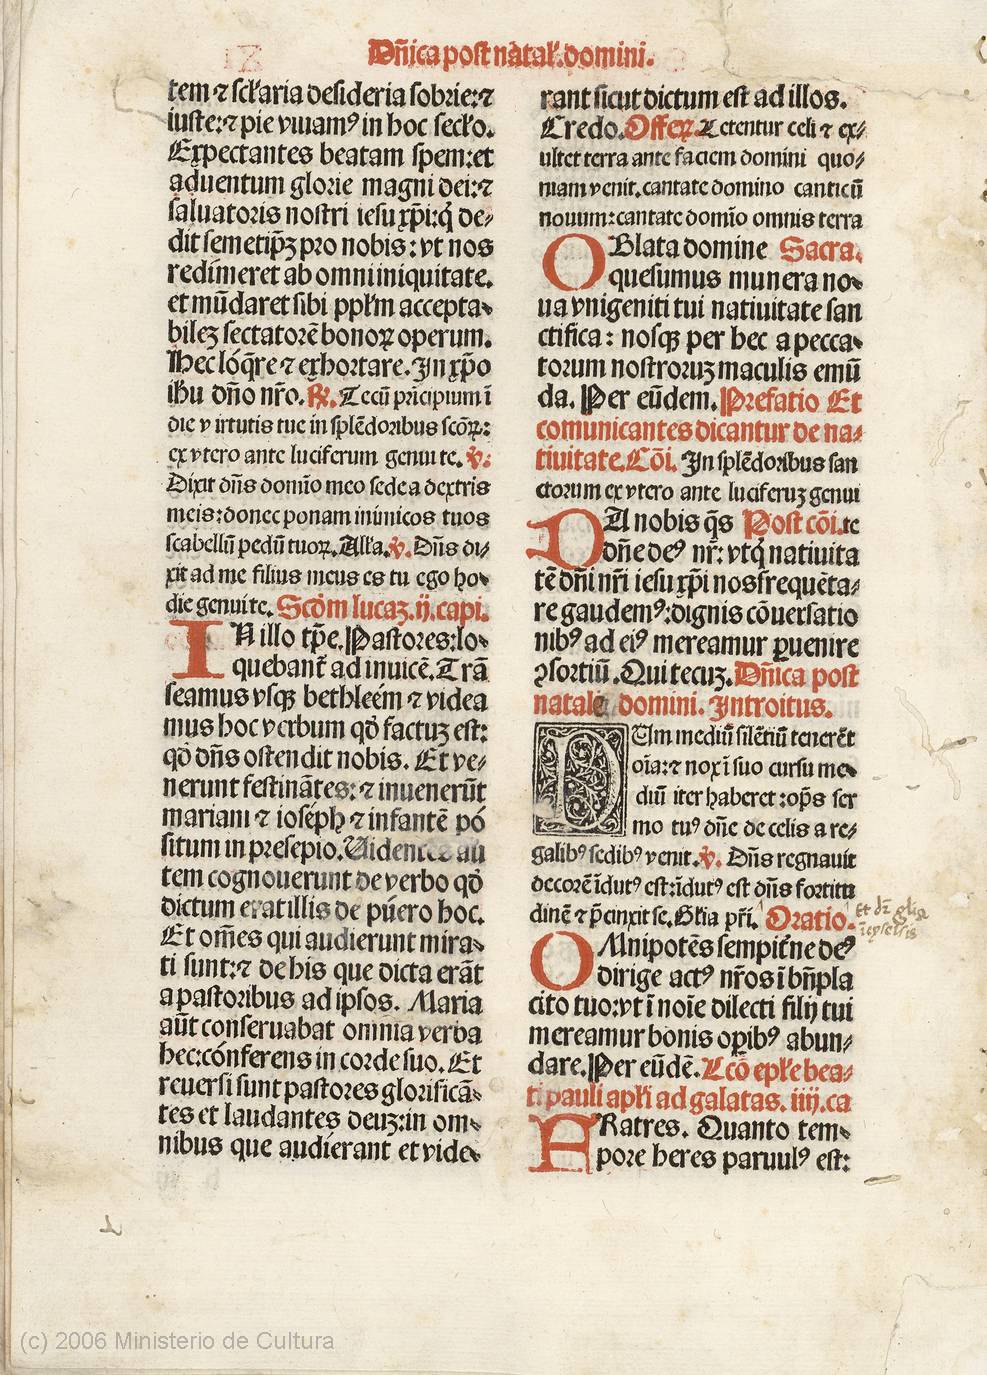 Dñica post natal'. domini.
tem ⁊ scl'aria desideria sobrie:⁊
iuste:⁊ pie viuamꝰ in hoc secl'o.
Expectantes beatam spem:et
aduentum glorie magni dei:⁊
saluatoris nostri iesu xp̄i:q̇ de⸗
dit semetip̄ꝫ pro nobis: vt nos
redimeret ab omni iniquitate.
et mūdaret sibi ppl'm accepta⸗
bileꝫ sectatorē bonoꝝ operum.
Hec lóq̄re ⁊ exhortare. In xp̄o
ihu dño nr̄o. ℟. Tecū pricipium ī
die virtutis tue in splēdoribus scōꝝ:
ex vtero ante luciferum genui te. ℣.
Dixit dñs domīo meo sede a dextris
meis: donec ponam inimicos tuos
scabellū pedū tuoꝝ. All'a. ℣. Dñs di⸗
xit ad me filius meus es tu ego ho⸗
die genui te. Scďm lucaꝫ. ij. capi.
IN illo tp̄e. Pastores: lo⸗
quebant᷑ ad inuicē. Trā
seamus vsqꝫ bethleém ⁊ videa
mus hoc verbum qď factuꝫ est:
qď dñs ostendit nobis. Et ve⸗
nerunt festinātes: ⁊ inuenerūt
mariam ⁊ ioséph ⁊ infantē pó
situm in presepio. Uidentes au
tem cognouerunt de verbo qď
dictum erat illis de púero hoc.
Et om̄es qui audierunt mira⸗
ti sunt:⁊ de his que dicta erāt
a pastoribus ad ipsos. Maria
aūt conseruabat omnia verba
hec: cónferens in corde suo. Et
reuersi sunt pastores glorificā⸗
tes et laudantes deuꝫ: in om⸗
nibus que audíerant et vide⸗
rant sicut dictum est ad illos.
Credo. Offeꝝ. Letentur celi ⁊ ex⸗
ultet terra ante faciem domini quo⸗
niam venit. cantate domino canticū
nouum: cantate domīo omnis terra
OBlata domine Sacra.
quesumus munera no⸗
ua vnigeniti tui natiuitate san
ctifica: nosqꝫ per hec a pecca⸗
torum nostroruꝫ maculis emū
da. Per eūdem. Prefatio Et
comunicantes dicantur de na⸗
tiuitate. Cōi. In splēdoribus san
ctorum ex vtero ante luciferuꝫ genui
DA nobis q̄s Post cōi. te
dñe deꝰ nr̄: vt q̇ natiuita
tē dñi nr̄i iesu xp̄i nos frequēta⸗
re gaudemꝰ: dignis cōuersatio
nibꝰ ad eiꝰ mereamur ꝑuenire
ꝯsortiū. Qui tecuꝫ. Dñica post
natale domini. Introitus.
DUm mediū silētiū tenerēt
oīa:⁊ nox ī suo cursu me⸗
diū iter haberet: op̄s ser
mo tuꝰ dñe de celis a re⸗
galibꝰ sedibꝰ venit. ℣. Dñs regnauit
decorē īdutꝰ est: īdutꝰ est dñs fortitu
dinē ⁊ p̄cinxit se. Gl'ia pr̄i. Oratio.
OMnipotēs sempit᷑ne deꝰ
dirige actꝰ nr̄os ī bn̄pla
cito tuo: vt ī noīe dilecti filij tui
mereamur bonis oꝑibꝰ abun⸗
dare. Per eūdē. Lcō epl'e bea⸗
ti pauli apl'i ad galatas. iiij. ca
FRatres. Quanto tem⸗
pore heres paruulꝰ est:
(c) 2006 Ministerio de Cultura